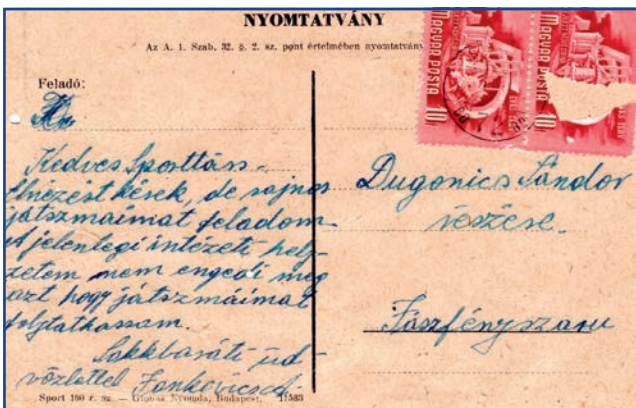 NYOMTATVÁNY
Az A. 1. Szab. 32. §. 2. sz. pont értelmében nyomtatvány
Feladó:
Kedves Sporttárs -
Elnézést kérek, de sajnos
játszmáimat feladom -
A jelenlegi intézeti hely-
zetem nem engedi meg
azt hogy játszmáimat
folytathassam.
Sakkbaráti üd-
vözlettel
Sport 160 r. sz. — Globus Nyomda, Budapest. 11583
MAGYAR POSTA
10f
MAGYAR POSTA
10f
Dugonics Sándor
részére.
Jászfényszaru